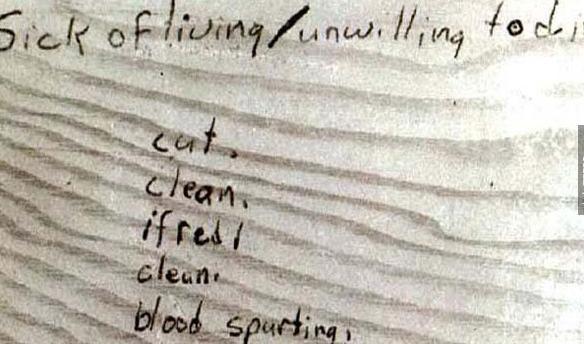 Sick of living/unwilling to di
cut.
clean.
if red/
clean.
blood spurting,